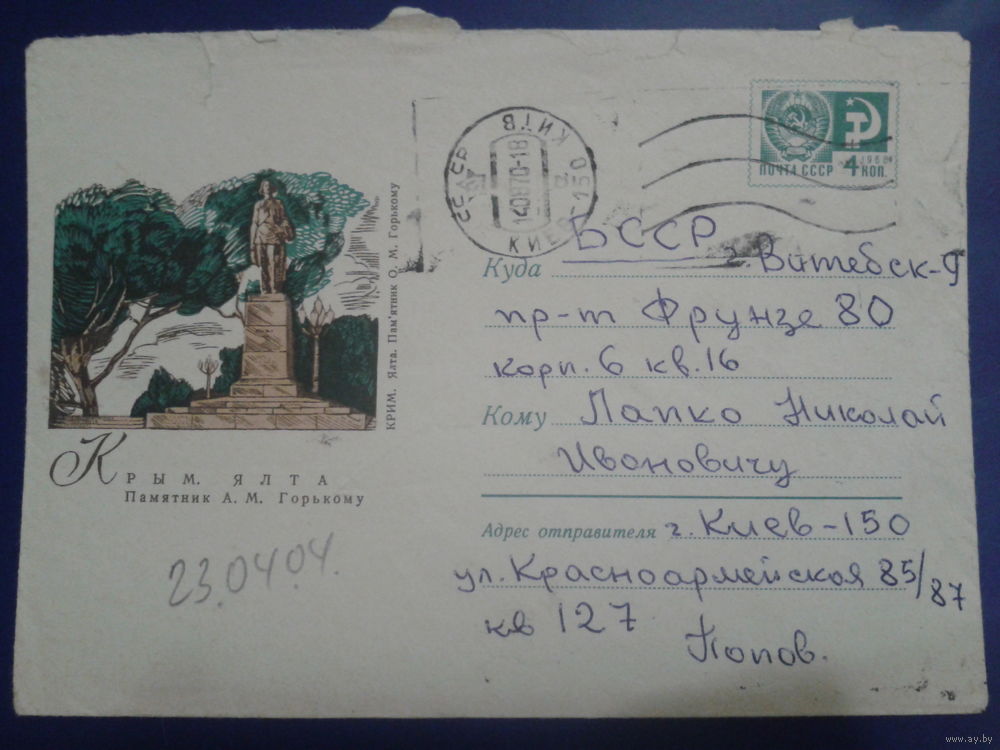 КИЇВ
КИЕВ-150
140870-18
1966
ПОЧТА СССР 4 КОП.
БССР
Куда г. Витебск-9
пр-т Фрунзе 80
корп. 6 кв. 16
Кому Лапко Николай
Ивоновичу
Адрес отправителя г. Киев-150
ул. Красноармейская 85/87
кв 127
Попов.
КРИМ. Ялта. Пам'ятник О. М. Горькому
КРЫМ. ЯЛТА
Памятник А. М. Горькому
23.04.04.
www.ay.by